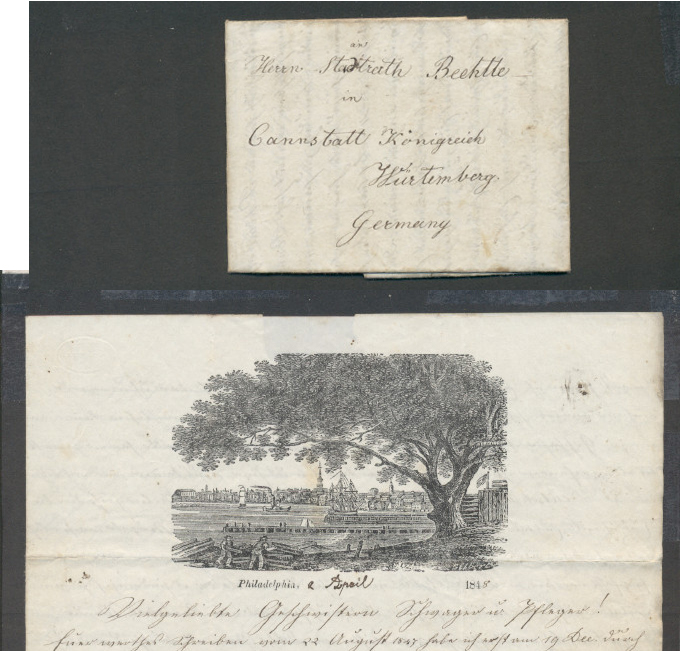 an
Herrn Stadtrath Bechtle
in
Cannstatt Königreich
Würtemberg.
Germany
Philadelphia, 2 April 1845
Vielgeliebte Geschwistern Schwager u. Pfleger!
Euer werthes Schreiben vom 22 August habe ich erst am 19 Dec. durch